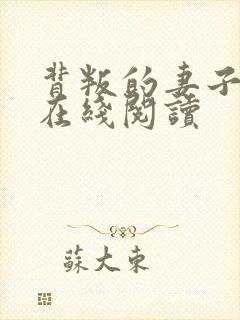 背叛的妻子
在綫閱讀
蘇大東